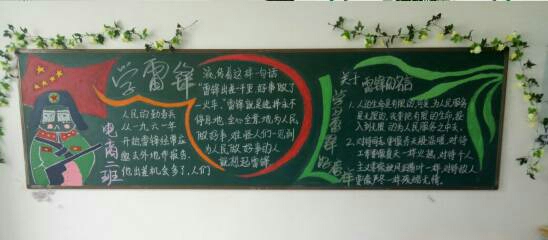 学雷锋
人民的勤务兵
从一九六一年
开始雷锋经常应
邀去外地作报告
他出差机会多了，人们
流传着这样一句话
雷锋出差一千里，好事做了
一火车，雷锋就是这样永不
停息地，全心全意地为人民
做好事，难怪人们一见到
为人民做好事的人
就想起雷锋
电商三班
学雷锋好榜样
关于
雷锋的名言
1、人的生命是有限的，可是，为人民服务
是无限的，我要把有限的生命，投
入到无限的为人民服务之中去。
2、对待同志要像春天般温暖，对待
工作要像夏天一样火热，对待个人
主义要像秋风扫落叶一样，对待敌人
要像严冬一样残酷无情。